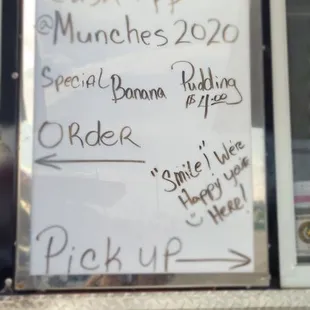 @Munches 2020
Special Banana Pudding
$4.00
Order
"Smile! We're
Happy you're
Here!
Pick up